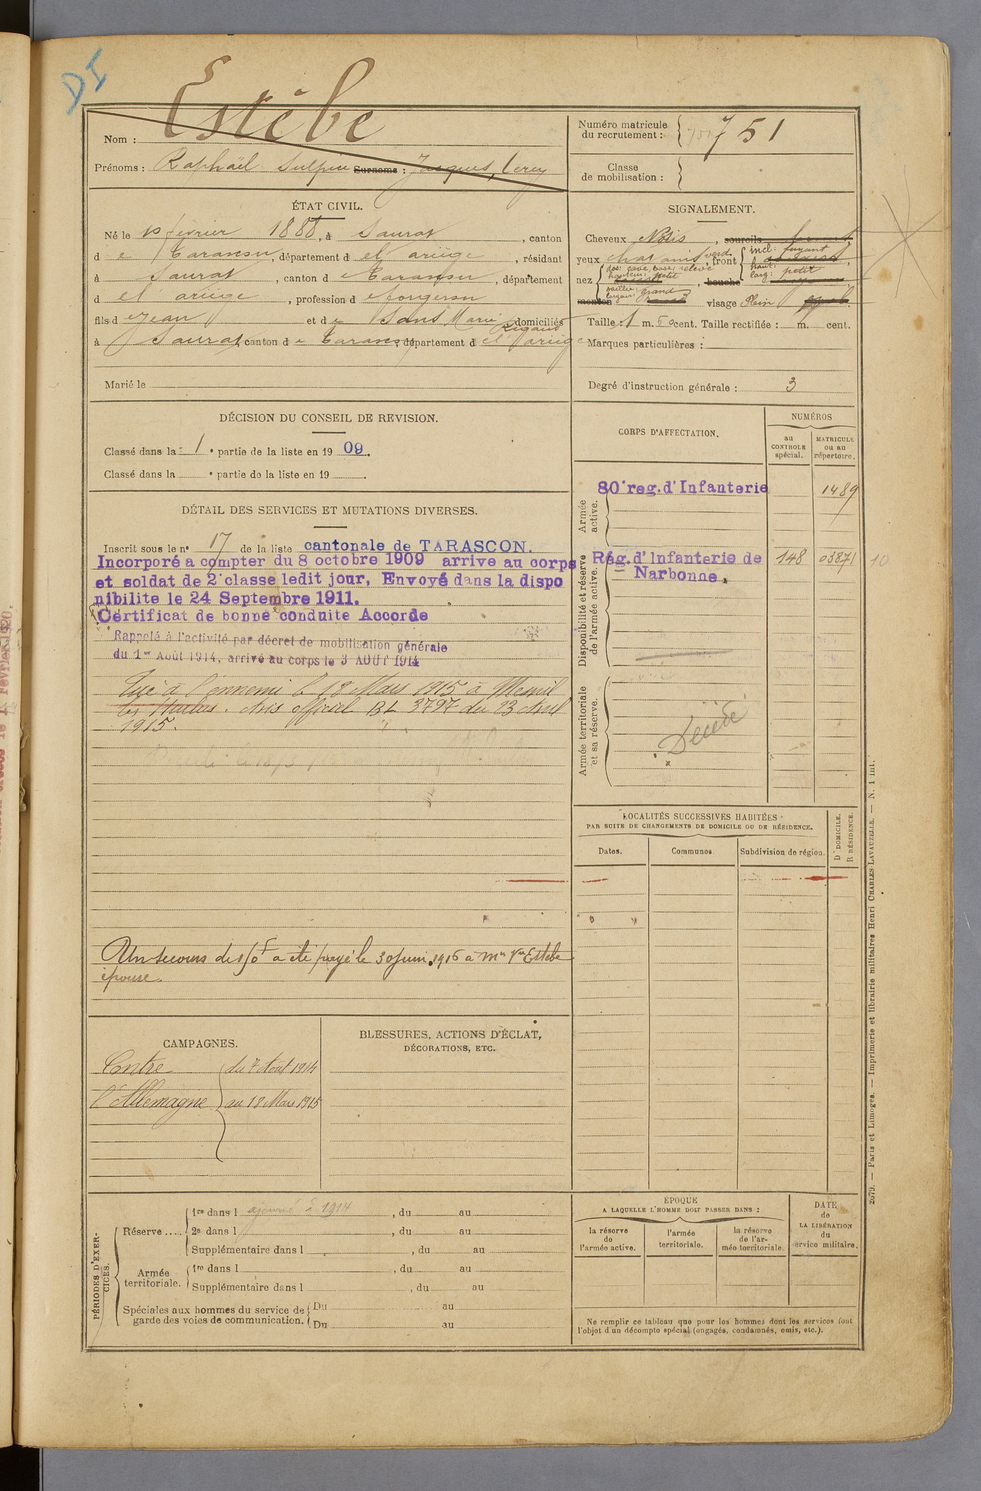 DI
Estèbe
Nom :
Prénoms : Raphaël Sulpice Surnoms : Jacques,
Numéro matricule du recrutement : 751
Classe de mobilisation :
ÉTAT CIVIL.
Né le 10 février 1888, à Saurat, canton
d e Tarascon, département d e l'ariège, résidant
à Saurat, canton d e Tarascon, département
d e l'ariège, profession d e forgeron
fils d e Jean et d e Sans Marie domiciliés
à Saurat, canton d e Tarascon département d e l'ariège
Marié le
SIGNALEMENT.
Cheveux Noirs, sourcils
yeux chatains verds, front incl: fuyant
haut:
larg: petit
nez dos: cave, base relevé
hauteur: petit
saillie:
largeur: grand
bouche
menton visage Plein
Taille : 1 m. cent. Taille rectifiée : m. cent.
Marques particulières :
Degré d'instruction générale : 3
DÉCISION DU CONSEIL DE REVISION.
Classé dans la 1e partie de la liste en 1909.
Classé dans la e partie de la liste en 19 .
DÉTAIL DES SERVICES ET MUTATIONS DIVERSES.
Inscrit sous le n° 17 de la liste cantonale de TARASCON.
Incorporé a compter du 8 octobre 1909 arrive au corps
et soldat de 2e classe ledit jour, Envoyé dans la dispo
nibilite le 24 Septembre 1911.
Certificat de bonne conduite Accorde
Rappelé à l'activité par décret de mobilisation générale
du 1er Août 1914, arrivé au corps le 3 AOUT 1914
Tué à l'ennemi le 18 Mars 1915 à Mesnil
les Hurlus. Avis officiel BL 3797 du 23 Avril
1915.
Un secours de 150f a été payé le 30 Juin 1916 à Me Vve Estèbe
épouse.
CORPS D'AFFECTATION.
NUMÉROS
au CONTROLE spécial.
MATRICULE ou au répertoire.
Armée active.
80e reg. d'Infanterie 1489
Disponibilité et réserve de l'armée active.
Rég. d'Infanterie de Narbonne. 148 03871 10
Armée territoriale et sa réserve.
Décédé
LOCALITÉS SUCCESSIVES HABITÉES
PAR SUITE DE CHANGEMENTS DE DOMICILE OU DE RÉSIDENCE.
Dates.
Communes
Subdivision de région.
D DOMICILE.
R RÉSIDENCE.
CAMPAGNES.
Contre l'Allemagne du 2 Aout 1914
au 18 Mars 1915
BLESSURES, ACTIONS D'ÉCLAT,
DÉCORATIONS, ETC.
PÉRIODES D'EXERCICES.
Réserve ..... 1re dans l ajourné à 1914, du au
2e dans l , du au
Supplémentaire dans l , du au
Armée territoriale. 1re dans l , du au
Supplémentaire dans l , du au
Spéciales aux hommes du service de garde des voies de communication. Du au
Du au
ÉPOQUE
A LAQUELLE L'HOMME DOIT PASSER DANS :
la réserve de l'armée active.
l'armée territoriale.
la réserve de l'armée territoriale.
DATE de LA LIBÉRATION du service militaire.
Ne remplir ce tableau que pour les hommes dont les services font
l'objet d'un décompte spécial (engagés, condamnés, omis, etc.).
2079. — Paris et Limoges. — Imprimerie et librairie militaires Henri CHARLES-LAVAUZELLE. — N. 1 int.